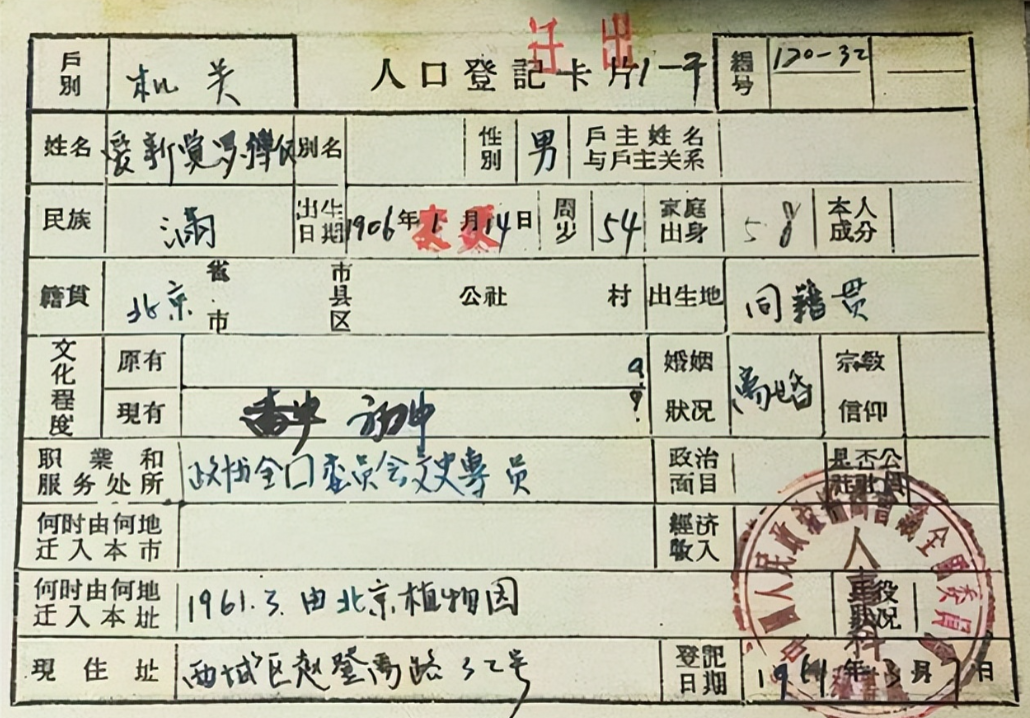 迁出
戶別 机关 人口登記卡片 1-平 編号 120-32
姓名 爱新觉罗 別名 性別 男 戶主姓名与戶主关系
民族 满 出生日期 1906年1月14日 变更 周岁 54 家庭出身 58 本人成分
籍貫 北京 省市 市县区 公社 村 出生地 同籍贯
文化程度 原有 婚姻狀况 离婚 宗教信仰
現有 初中
职業和服务处所 政协全国委员会文史專员 政治面目 是否公社社員
何时由何地迁入本市 經济收入
何时由何地迁入本址 1961.3.由北京植物园 兵役狀况
現住址 西城区赵登禹路32号 登記日期 1961年3月7日
中国人民政治协商會議全国委員會
人事科